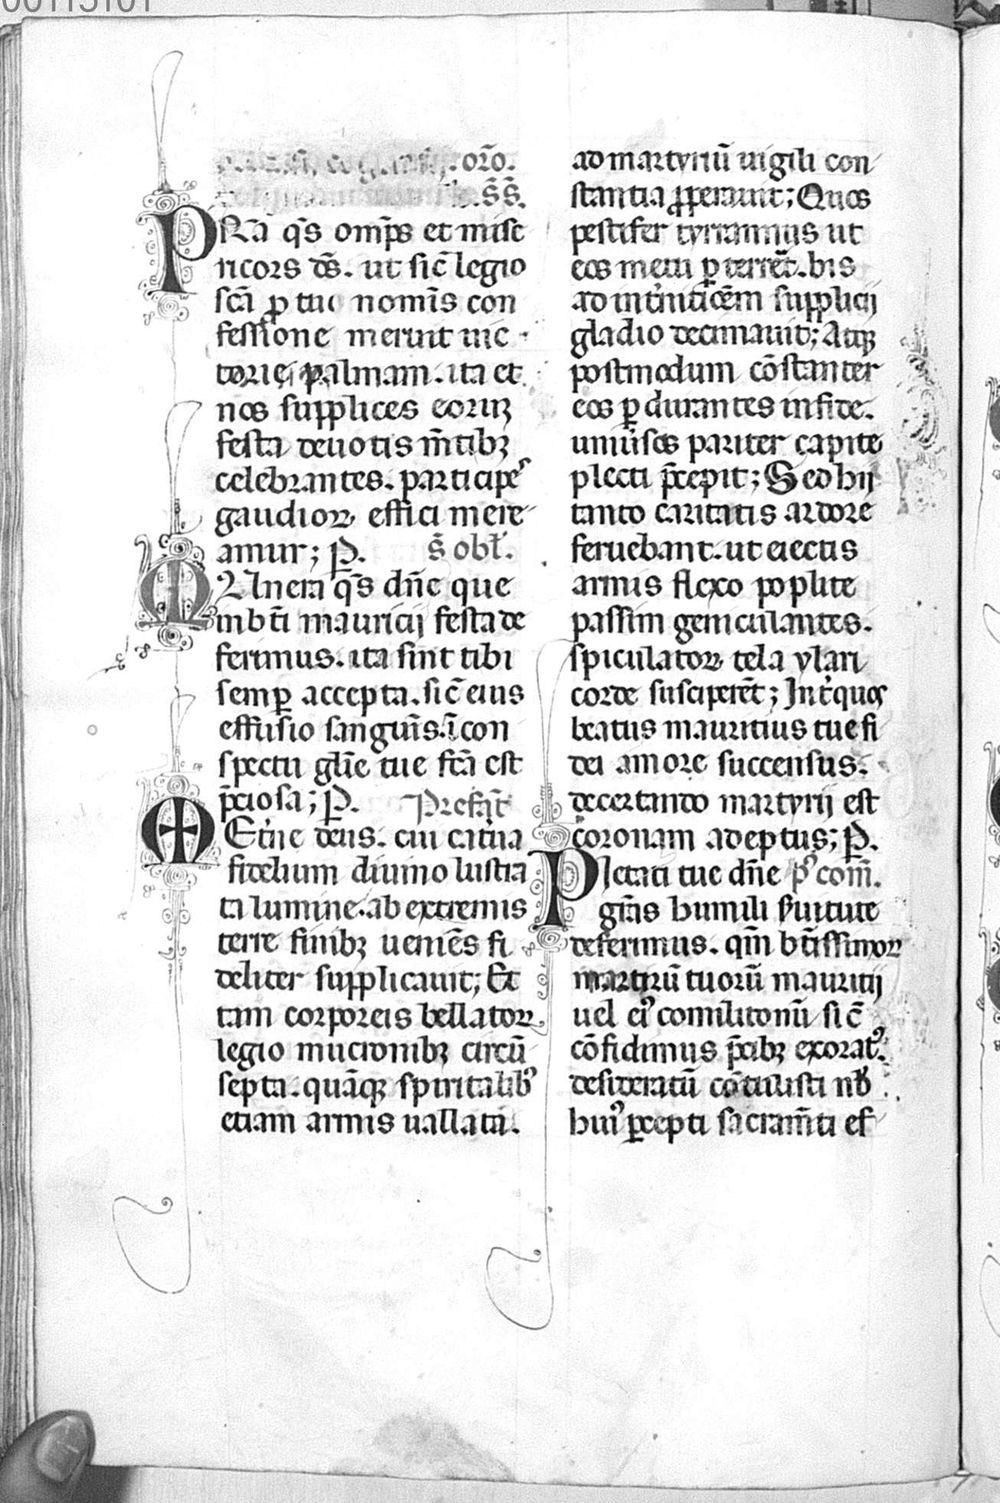 oro᷑.
s̄s̄.
PRᷓa q̄s om̄ps et mise
ricors ds̄. ut sic̄ legio
sc̄a ꝓ tuo nomīs con
fessione meruit uic
torię palmam. ita et
nos supplices eoruꝫ
festa deuotis m̄tibꝫ
celebrantes. participeˢ
gaudioꝝ effici mere
amur; P̱. s̄ obl̄.
MUnera q̄s dn̄e que
inbt̄i mauricij festa de
ferimus. ita sint tibi
semꝑ accepta. sic̄ eius
effusio sanguīs. ī con
spectu gl̄ie tue fc̄a est
p̄ciosa; P̱. Prefat̄
Et̄ne deus. cui cat̄ua
fidelium diuino lustra
ta lumine. ab extremis
terre finibꝫ ueniēs fi
deliter supplicauit; Et
tam corporeis bellatoꝝ
legio mucronibꝫ circū
septa. quāqꝫ spiritalibꝰ
etiam armis uallata.
ad martyriū uigili con
stantia ꝓperauit; Quos
pestifer tyrannus ut
eos metu ꝑterrēt. bis
ad int̄nitiōem supplicij
gladio decimauit; Atqꝫ
postmodum cōstanter
eos ꝑdurantes in fide.
uniūsos pariter capite
plecti p̄cepit; Sed hij
tanto caritatis ardore
feruebant. ut eiectis
armis flexo poplite
passim geniculantes.
spiculatoꝝ tela ylari
corde susciperēt; Int̄ quos
beatus mauritius tue fi
dei amore succensus.
decertando martyrij est
coronam adeptus; P̱.
PIetati tue dn̄e pꝰ com̄.
grās humili s̄uitute
deferimus. qm̄ bt̄issimoꝝ
martirū tuorū mauritij
uel eiꝰ comilitonū sic̄
cōfidimus p̄cibꝫ exoratꝰ.
desideratū cōtulisti nb̄
huiꝰ ꝑcepti sacram̄ti ef